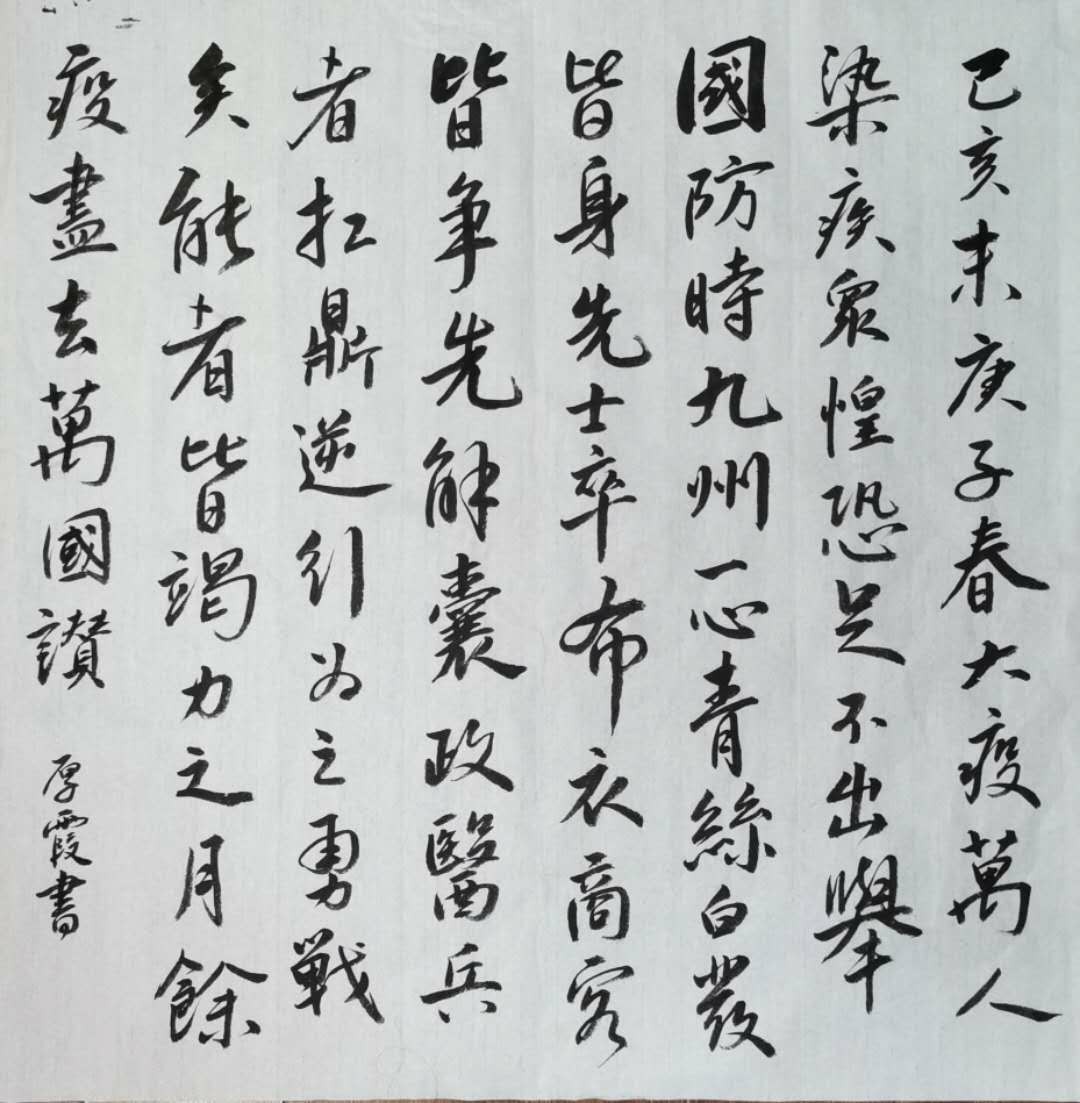 己亥末庚子春大疫萬人
染疾衆惶恐足不出舉
國防時九州一心青絲白發
皆身先士卒布衣商客
皆争先解囊政醫兵
者扛鼎逆行为之勇戰
矣能者皆竭力之月餘
疫盡去萬國讃
厚霞書